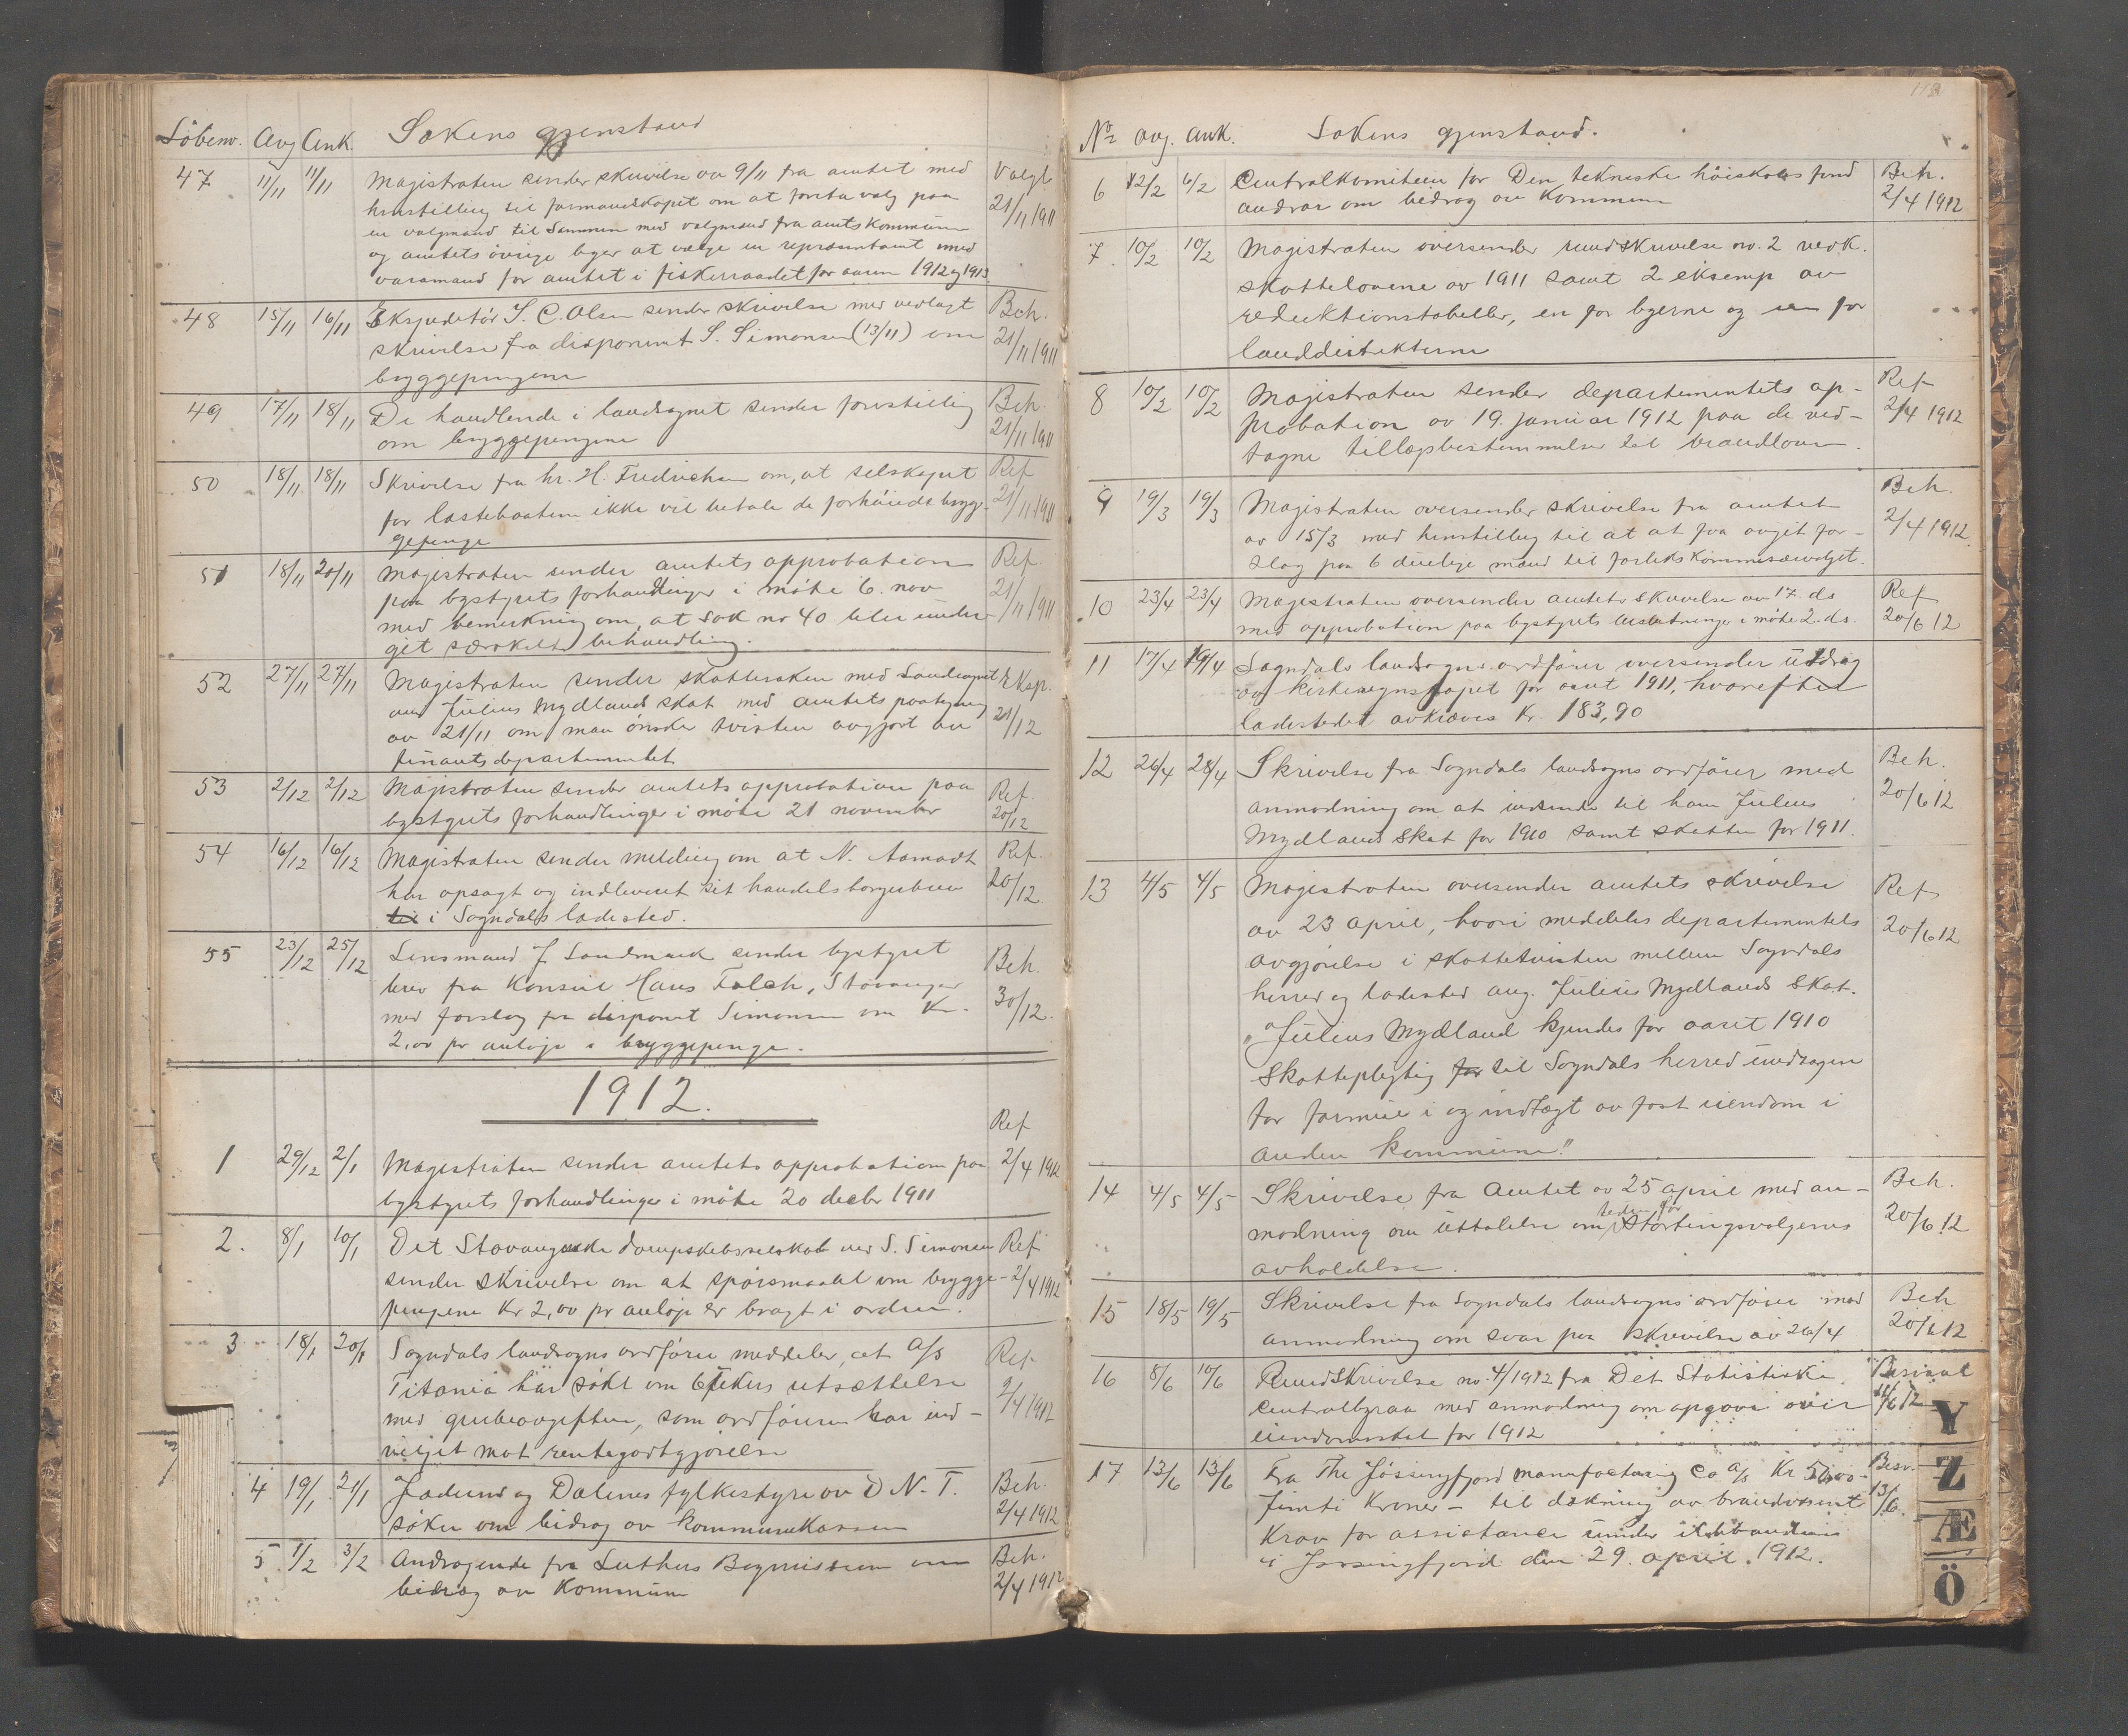 Löbenr. Avg Ank. Sakens gjenstand
47 11/11 11/11 Magistraten sender skrivelse av 9/11 fra amtet med Valgt
henstilling til formandskapet om at foreta valg paa 21/11 1911
en valgmand til sammen med valgmænd fra amtskommunen
og amtets övrige byer at vælge en repræsentant med
varamand for amtet i fiskerraadet for aaren 1912 og 1913
48 15/11 16/11 Ekspeditör S. C. Olsen sender skrivelse med vedlagt Beh.
skrivelse fra disponent S. Simonsen (13/11) om 21/11 1911
bryggepengene
49 17/11 18/11 De handlende i landsognet sender forestilling Beh
om bryggepengene 21/11 1911
50 18/11 18/11 Skrivelse fra hr. H. Fredrichsen om, at selskapet Ref
for lastebaatene ikke vil betale de forhöiede bryg- 21/11 1911
gepenge
51 18/11 20/11 Magistraten sender amtets approbation Ref.
paa bystyrets forhandlinger i möte 6. nov 21/11 1911
med bemerkning om, at sak no 40 blir under-
git særskilt behandling.
52 27/11 27/11 Magistraten sender skattesaken med landsognet Eksp.
om Julius Mydlands skat med amtets paategning 21/12
av 21/11 om man önsker tvisten avgjort av
finantsdepartementet
53 2/12 2/12 Magistraten sender amtets approbation paa Ref.
bystyrets forhandlinger i möte 21 november 20/12
54 16/12 16/12 Magistraten sender melding om at N. Aamodt Ref.
har opsagt og indleveret sit handelsborgerbrev 20/12
til i Sogndals ladested.
55 23/12 25/12 Lensmand J Sandmark sender bystyret Beh.
brev fra Konsul Hans Falch, Stavanger 30/12.
med forslag fra disponent Simonsen om Kr.
2,00 pr anlöp i bryggepenge.
1912.
Ref
1 29/12 2/1 Magistraten sender amtets approbation paa 2/4 1912
bystyrets forhandlinger i möte 20 decbr 1911
2. 8/1 10/1 Det Stavangerske dampskibsselskab ved S. Simonsen Ref
sender skrivelse om at spörsmaalet om brygge- 2/4 1912
pengene Kr 2,00 pr anlöp er bragt i orden.
3 18/1 20/1 Sogndals landsogns ordförer meddeler, at A/S Ref
Titania har sökt om 6 ukers utsættelse 2/4 1912
med grubeavgiften, som ordföreren har ind-
vilget mot rentegodtgjörelse
4 19/1 21/1 Jæderens og Dalenes fylkesstyre av D N. T. Beh.
söker om bidrag av kommunekassen 2/4 1912
5 1/2 3/2 Andragende fra Luthers Bymission om Beh.
bidrag av Kommunen 2/4 1912
No avg. ank. Sakens gjenstand.
6 12/2 6/2 Centralkomiteen for Den tekniske höiskoles fond Beh.
andrar om bidrag av Kommunen 2/4 1912
7. 10/2 10/2 Magistraten oversender rundskrivelse nr. 2 vedk.
skattelovene av 1911 samt 2 eksemp av
reduktionstabeller, en for byerne og en for
landdistrikterne
8 10/2 10/2 Magistraten sender departementets ap- Ref
probation av 19. januar 1912 paa de ved- 2/4 1912
tagne tillægsbestemmelser til brandloven.
9 19/3 19/3 Magistraten oversender skrivelse fra amtet Beh.
av 15/3 med henstilling til at at faa avgit for- 2/4 1912.
slag paa 6 duelige mænd til forlikskommissærvalget.
10 23/4 23/4 Magistraten oversender amtets skrivelse av 17. ds Ref
med approbation paa bystyrets beslutninger i möte 2. ds. 20/6 12
11 17/4 19/4 Sogndals landsogns ordförer oversender utdrag
av kirkeregnskapet for aaret 1911, hvorefter
ladestedet avkræves Kr. 183,90
12 26/4 28/4 Skrivelse fra Sogndals landsogns ordförer med Beh.
anmodning om at indsende til ham Julius 20/6 12
Mydlands skat for 1910 samt skatten for 1911.
13 4/5 4/5 Magistraten oversender amtets skrivelse Ref
av 23 april, hvori meddeles departementets 20/6 12
avgjörelse i skattetvisten mellem Sogndals
herred og ladested ang. Julius Mydlands skat.
"Julius Mydland kjendes for aaret 1910
skattepligtig for til Sogndals herred undtagen
for formue i og indtægt av fast eiendom i
anden kommune."
14 4/5 4/5 Skrivelse fra Amtet av 25 april med an- Beh.
tiden for
modning om uttalelse om Stortingsvalgenes 20/6 12
avholdelse.
15 18/5 19/5 Skrivelse fra Sogndals landsogns ordförer med Beh
anmodning om svar paa skrivelse av 26/4 20/6 12
16 8/6 10/6 Rundskrivelse no. 4/1912 fra Det Statistiske Besvaret
Centralbyraa med anmodning om opgave over /6 12
eiendomsskat for 1912
17 13/6 13/6 Fra The Jössingfjord manufacturing Co A/S Kr 50.00- Besv.
femti Kroner - til dækning av brandvæsenets 13/6.
krav for assistance under ildebranden
i Jössingfjord den 29. april. 1912.
Y
Z
Æ
Ö